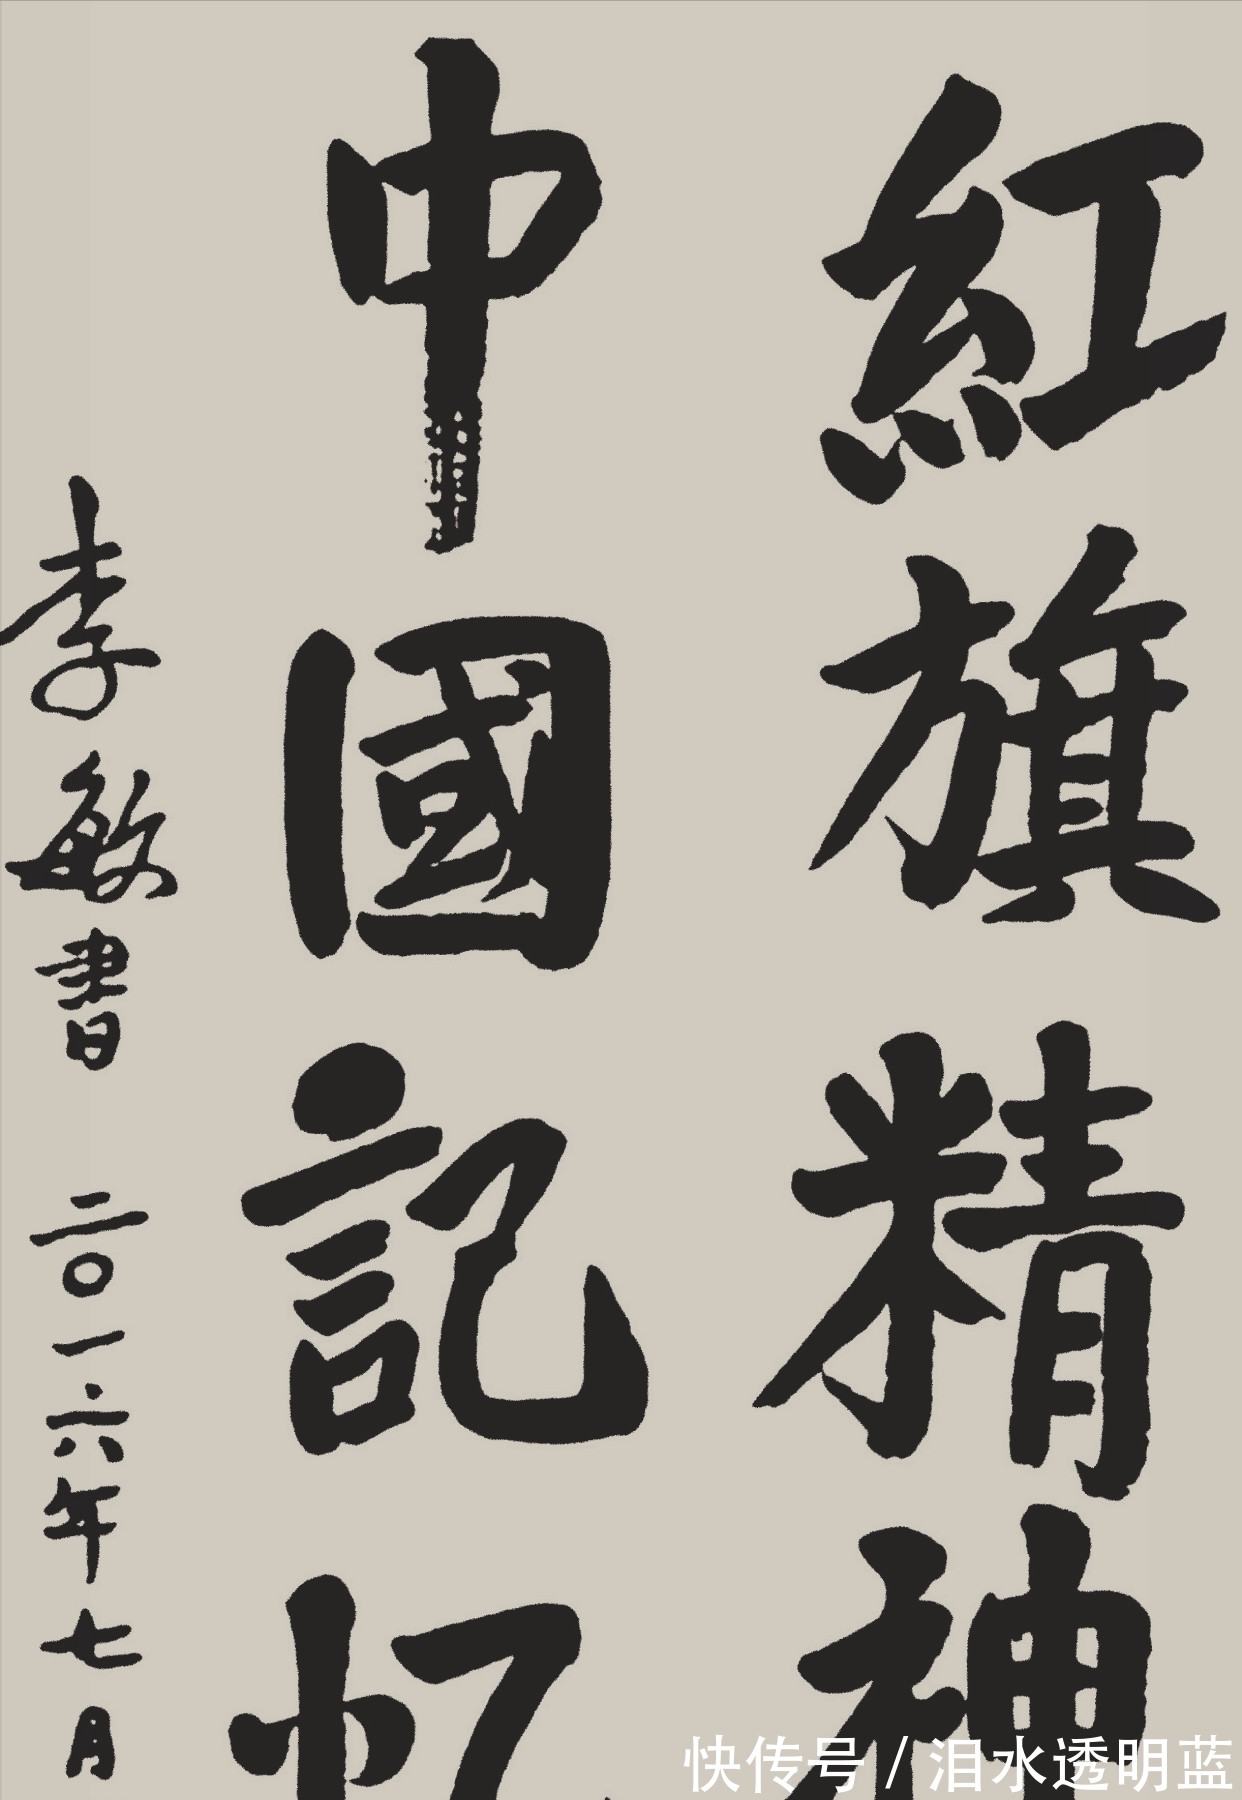 紅旗精神
中國記忆
李敏書 二〇一六年七月
快传号 / 泪水透明蓝